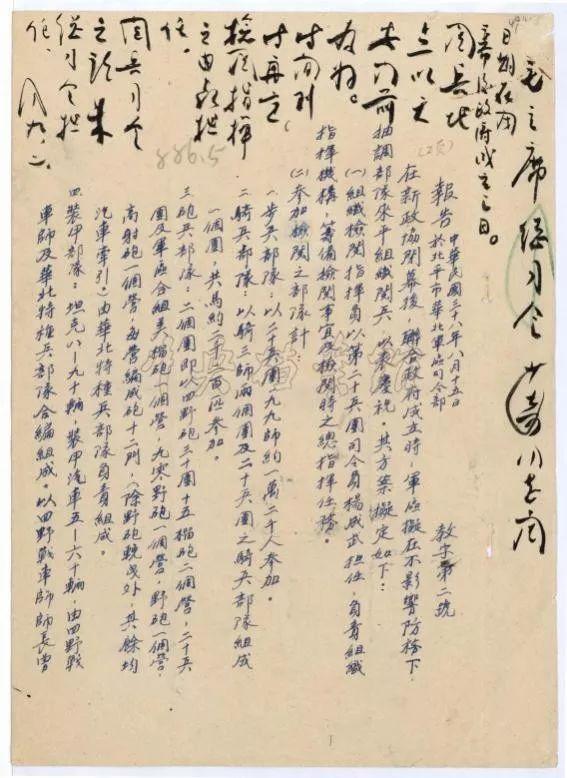 毛主席 總司令 少奇同志閱
日期在
政府成立之日。
閱兵地
点以天
安门前
为好。
時间到
时再定,
檢閱指揮
員由聶担
任。
閱兵司令
請朱
總司令担
任、
周 九、二、
886.5
(2頁)
報告
中華民國三十八年八月十五日
於北平市華北軍區司令部
教字第二號
在新政協閉幕後,聯合政府成立時,軍區擬在不影響防務下,
抽調部隊來平組織閱兵,以表慶祝。其方案擬定如下:
(一)組織檢閱指揮員以第二十兵團司令員楊成武担任,負責組織
指揮機構,籌備檢閱事宜及檢閱時之總指揮任務。
(二)參加檢閱之部隊計:
一步兵部隊:以二十兵團一九九師約一萬二千人參加。
二騎兵部隊:以騎三師兩個團及二十兵團之騎兵部隊組成
一個團,共馬約二千二百匹參加。
三砲兵部隊:二個團即以四野砲三十團十五榴砲二個營,二十兵
團及軍區合組美榴砲一個營,九零野砲一個營,野砲一個營,
高射砲一個營,每營編成砲十二門,(除野砲輓曳外,其餘均
汽車牽引)由華北特種兵部隊負責組成。
四裝甲部隊:坦克八—九十輛,裝甲汽車五—六十輛,由四野戰
車師及華北特種兵部隊合編組成。以四野戰車師師長曹